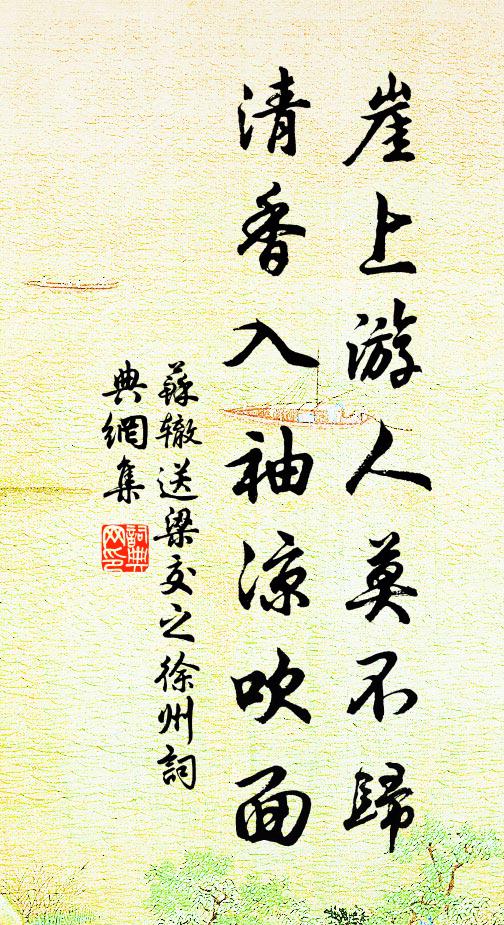 崖上游人莫不歸
清香入袖涼吹面
蘇轍送梁交之徐州詞
典網集
詞典
网印